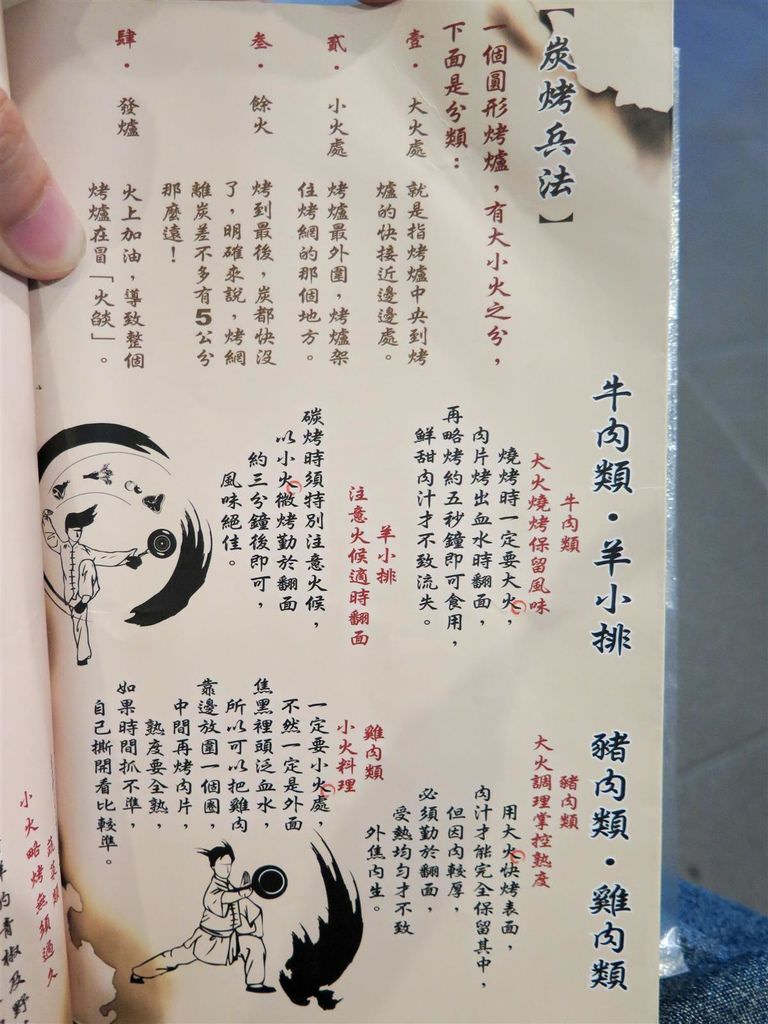 【炭烤兵法】
一個圓形烤爐，有大小火之分，
下面是分類：
壹．大火處
就是指烤爐中央到烤
爐的快接近邊邊處。
貳．小火處
烤爐最外圍，烤爐架
住烤網的那個地方。
叁．餘火
烤到最後，炭都快沒
了，明確來說，烤網
離炭差不多有5公分
那麼遠！
肆．發爐
火上加油，導致整個
烤爐在冒「火燄」。
牛肉類．羊小排
牛肉類
大火燒烤保留風味
燒烤時一定要大火，
肉片烤出血水時翻面，
再略烤約五秒鐘即可食用，
鮮甜肉汁才不致流失。
羊小排
注意火候適時翻面
碳烤時須特別注意火候，
以小火微烤勤於翻面
約三分鐘後即可，
風味絕佳。
豬肉類．雞肉類
豬肉類
大火調理掌控熟度
用大火快烤表面，
肉汁才能完全保留其中，
但因肉較厚，
必須勤於翻面，
受熱均勻才不致
外焦內生。
雞肉類
小火料理
一定要小火處，
不然一定是外面
焦黑裡頭泛血水，
所以可以把雞肉
靠邊放圍一個圈，
中間再烤肉片，
熟度要全熟，
如果時間抓不準，
自己撕開看比較準。
小火略烤無須過久
的青椒及野